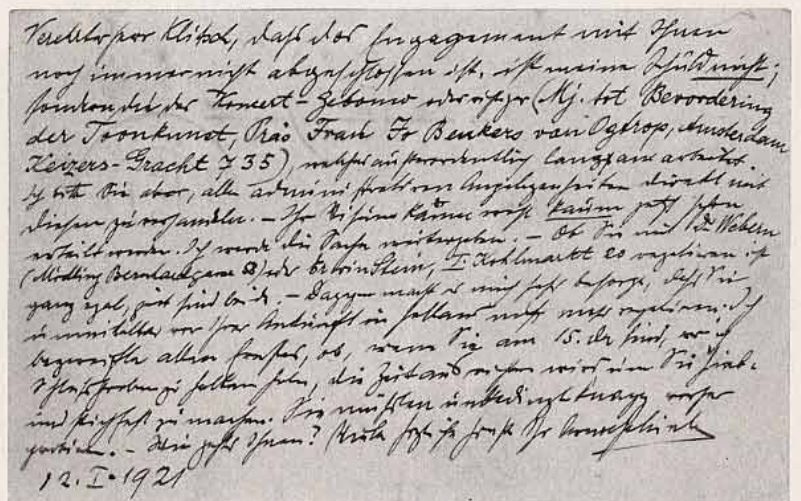 Verehrter Herr Klitsch, daß das Engagement mit Ihnen
noch immer nicht abgeschlossen ist, ist meine Schuld nicht;
sondern die der Konzert-Gebouw oder richtiger (Mj. tot Bevordering
der Toonkunst, Präs Frau Jo Beukers van Ogtrop, Amsterdam
Keizers-Gracht 735), welche außerordentlich langsam arbeitet
Ich bitte Sie aber, alle administrativen Angelegenheiten direkt mit
diesen zu verhandeln. – Ihr kaum jetzt schon
erteilt werden. Ich werde die Sache weitergeben. – Ob Sie mit Dr Webern
(Mödling Bernhardgasse 58) oder Erwin Stein, I. Kohlmarkt 20 repetieren ist
ganz egal, gut sind beide. – Dagegen macht es mich sehr besorgt, daß Sie
unmittelbar vor Ihrer Ankunft in Holland nicht mehr repetieren. Ich
bezweifle allen Ernstes, ob, wenn Sie am 15. da sind, wo ich
zu halten habe, die Zeit ausreichen wird um Sie hieb-
und stichfest zu machen. Sie müßten unbedingt knapp vorher
– Wie geht's Ihnen? Viele herzliche Grüße Ihr Arnold Schönberg
12. I. 1921